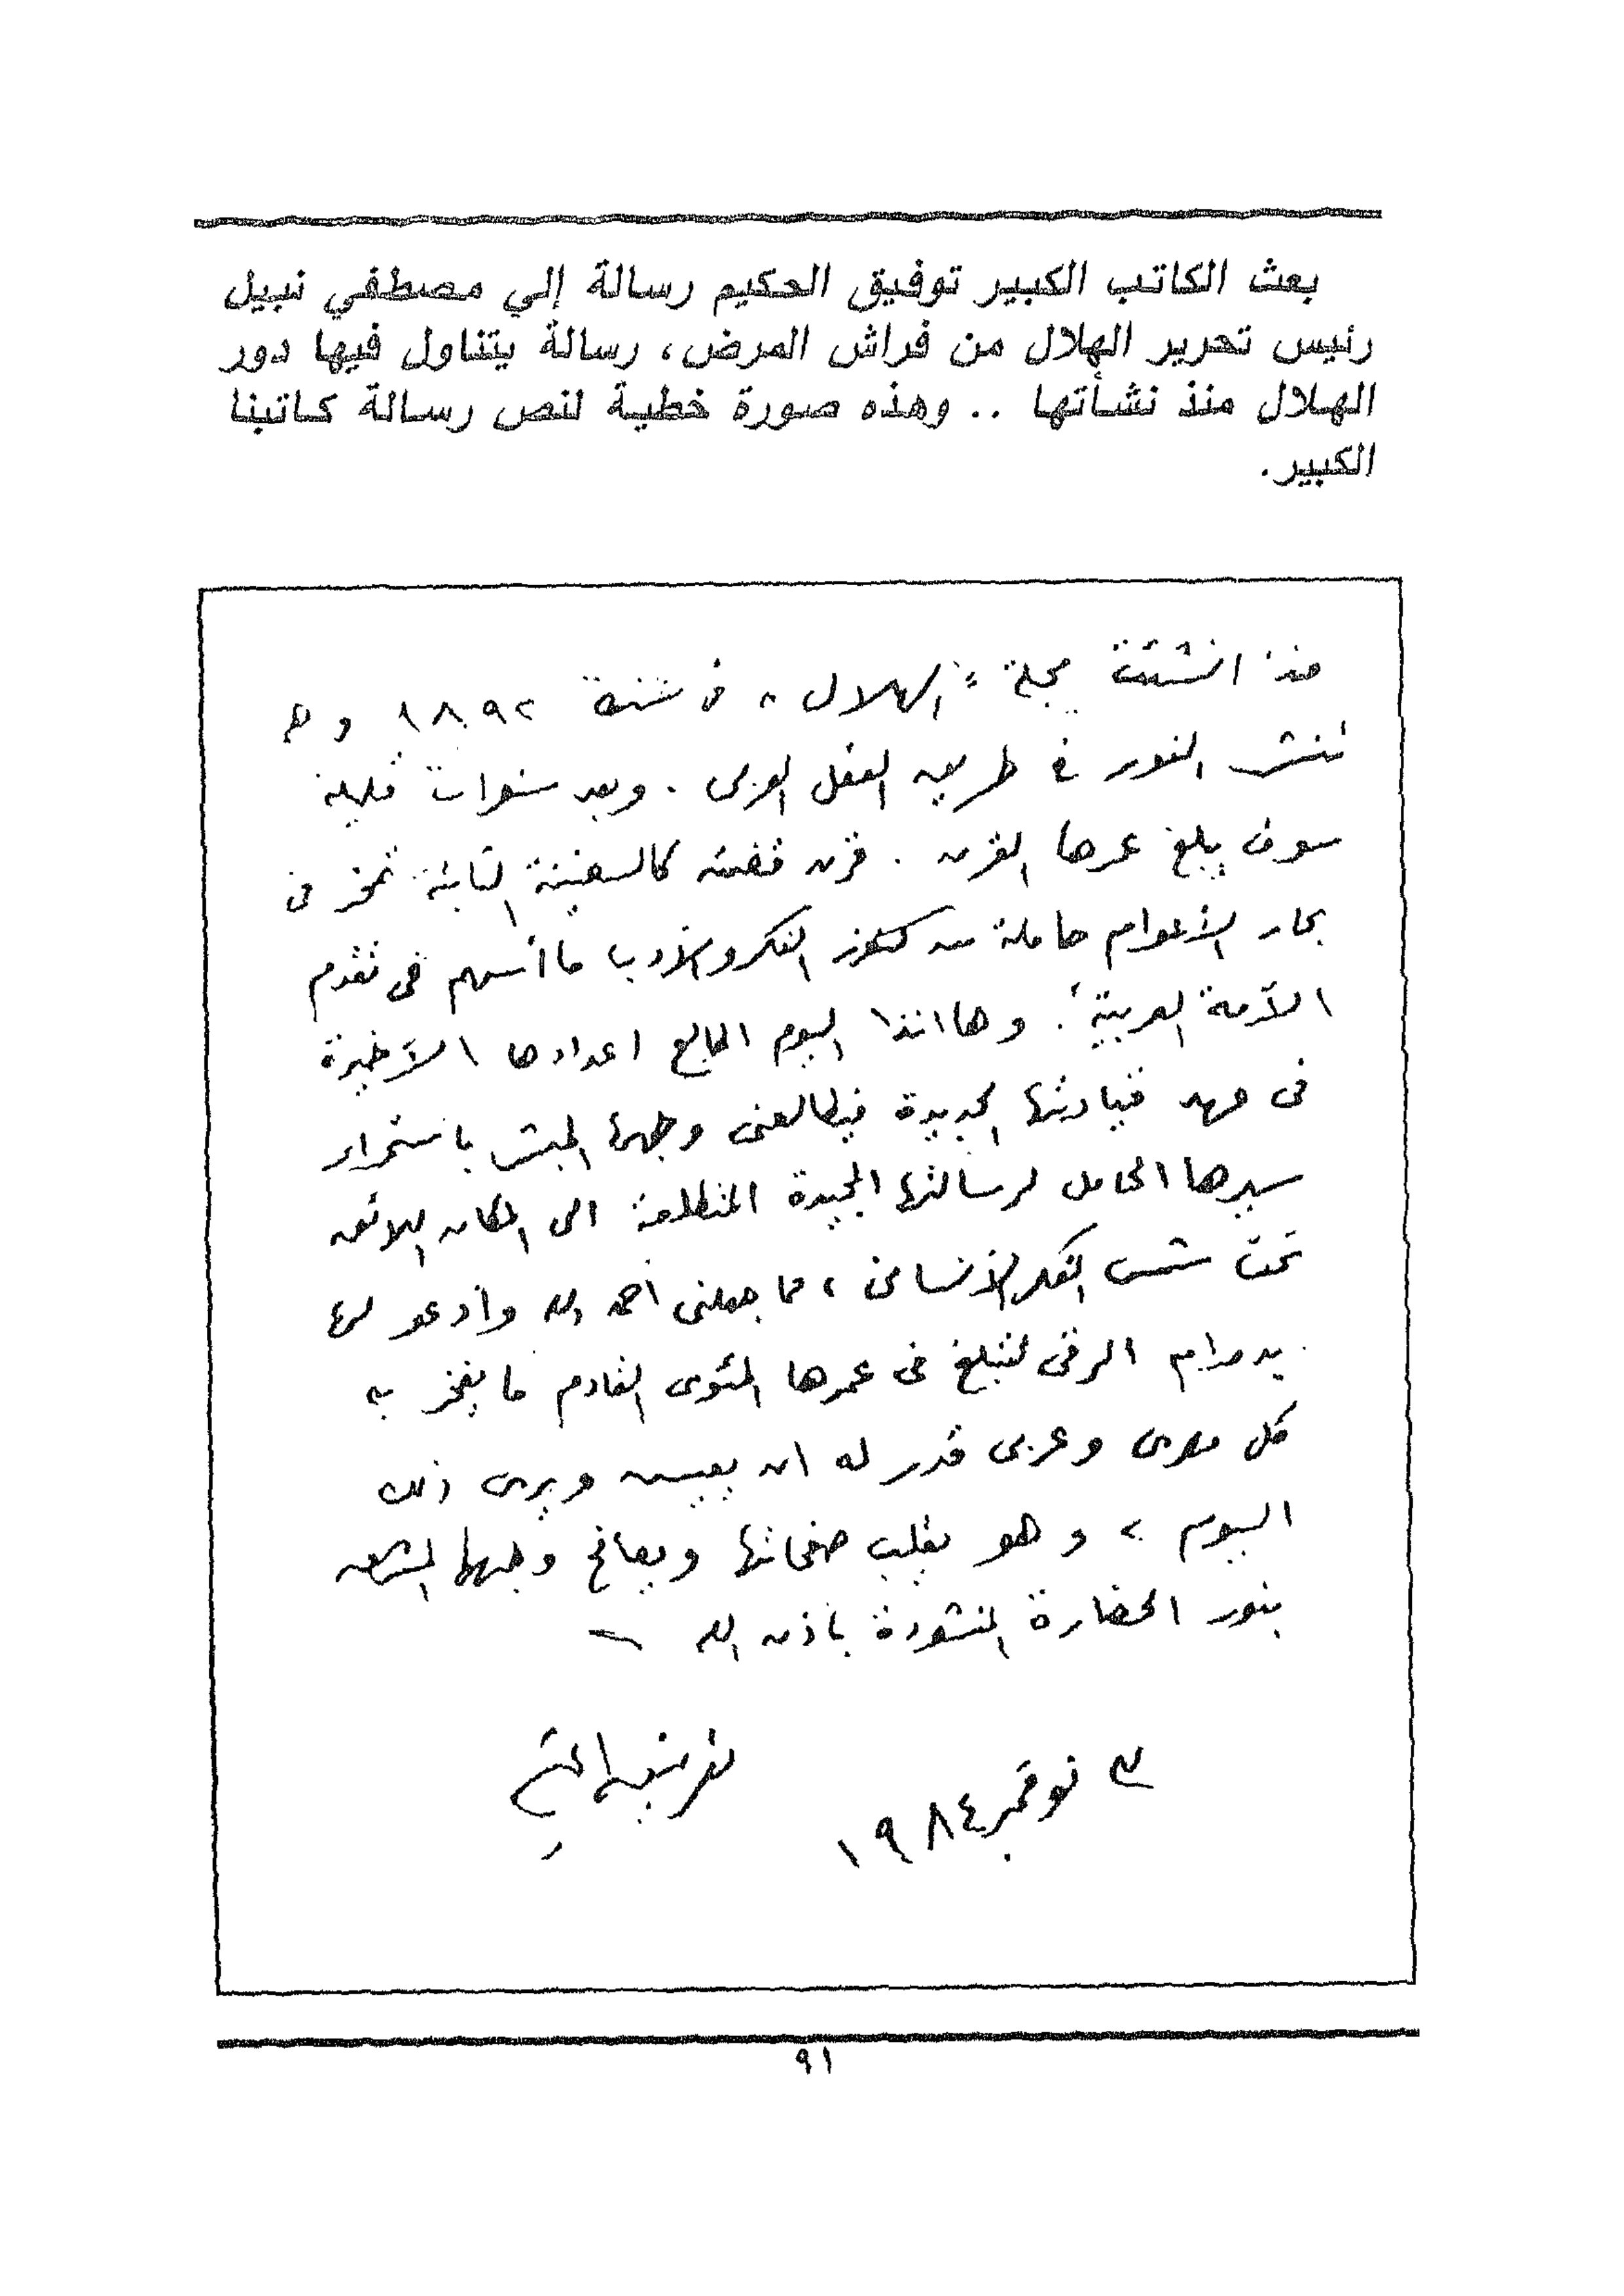 بعث الكاتب الكبير توفيق الحكيم رسالة إلي مصطفي نبيل
رئيس تحرير الهلال من فراش المرض، رسالة يتناول فيها دور
الهلال منذ نشأتها .. وهذه صورة خطية لنص رسالة كاتبنا
الكبير.
منذ انشئت مجلة "الهلال" فى سنة ١٨٩٢ وهى
تنشر النور فى طريق العقل العربى . وبعد سنوات قليلة
سوف يبلغ عمرها القرن . قرن قضته كالسفينة الثابتة تمخر فى
بحار الأعوام حاملة من كنوز الفكر والأدب ما أسهم فى تقدم
الأمة العربية . وها انذا اليوم اطالع اعدادها الأخيرة
فى عهد قيادتها الجديدة فيطالعنى وجهها المبشر باستمرار
سيرها الحامل لرسالتها المجيدة المتطلعة الى المكان اللائق
تحت شمس الفكر الأنسانى ، مما جعلنى أحمد الله وأدعو لها
بدوام الرقى لتبلغ فى عمرها المئوى القادم ما يفخر به
كل مصرى وعربى قدر له ان يعيش ويرى ذلك
اليوم ، وهو يقلب صفحاتها ويصافح وجهها المشرق
بنور الحضارة المنشودة باذن الله
٣ نوفمبر ١٩٨٤
توفيق الحكيم
٩١